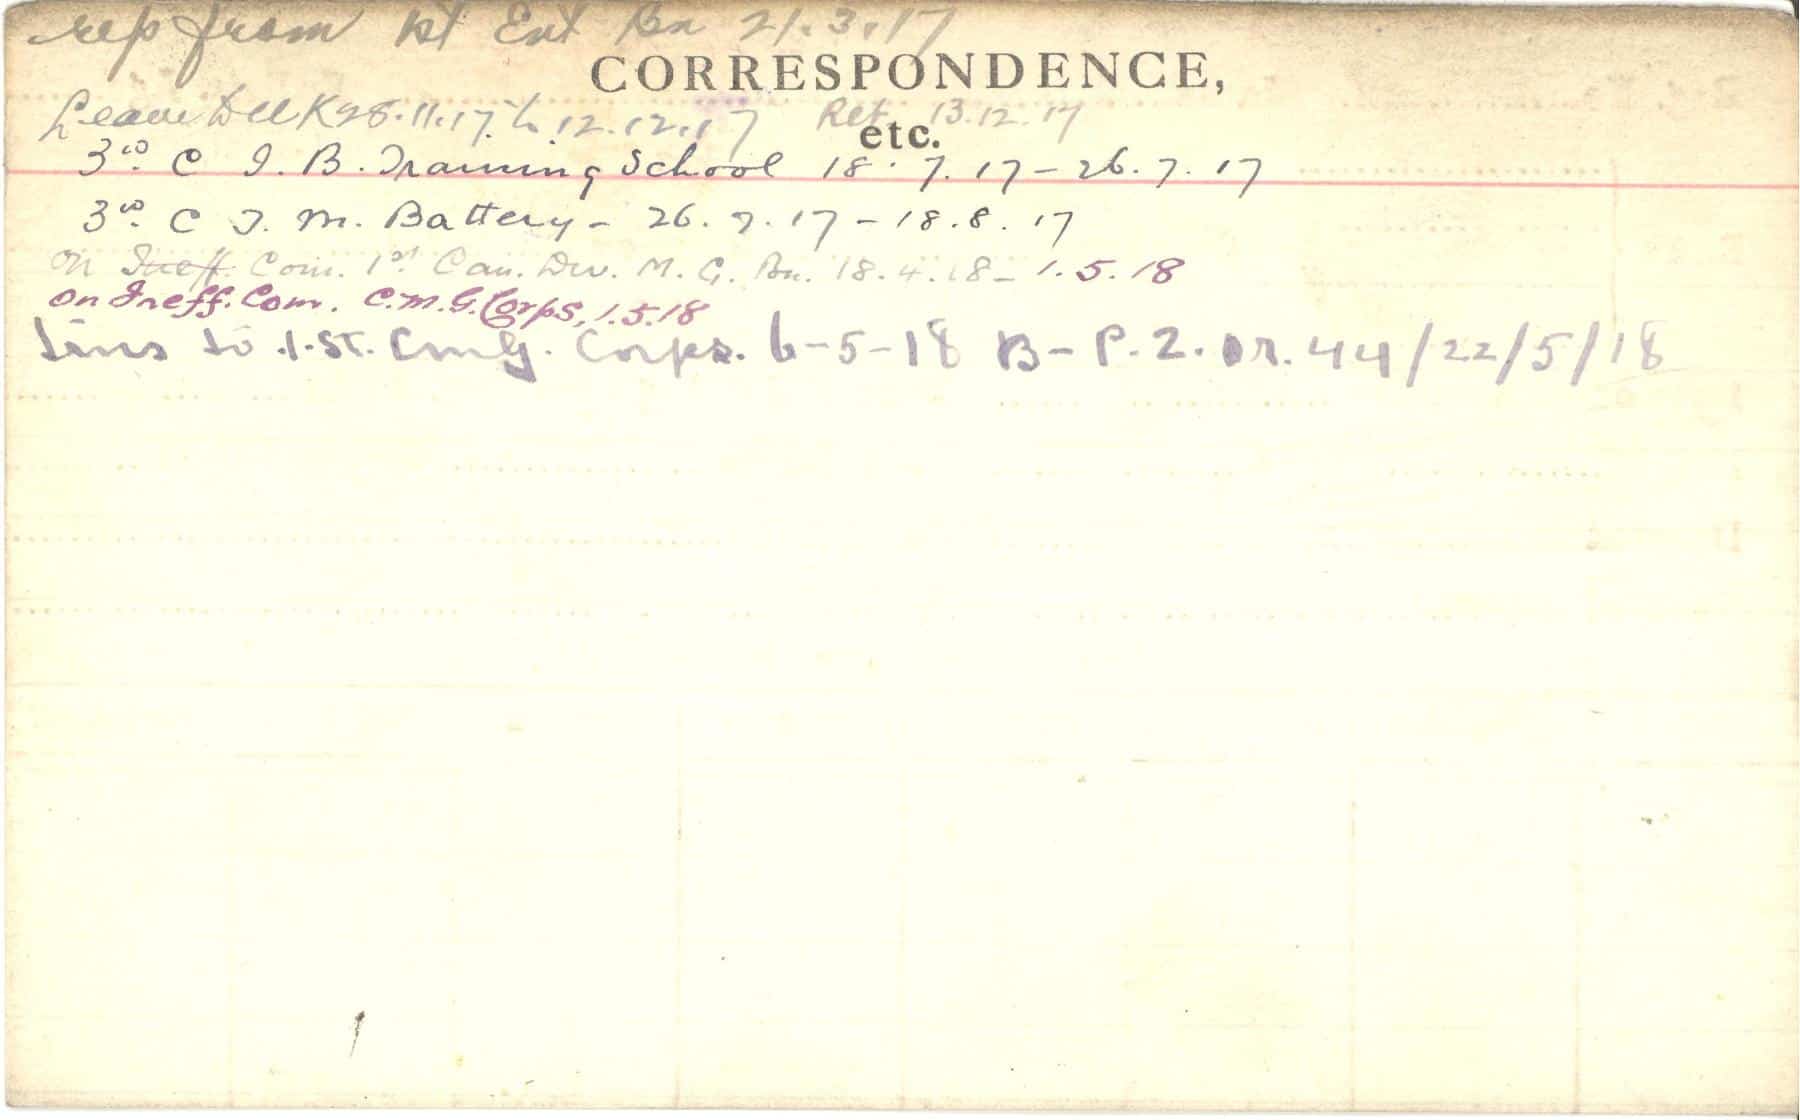 rep from 1st Ent Bn 21.3.17
CORRESPONDENCE,
Leave to U K 28.11.17 to 12.12.17 Ret. 13.12.17
etc.
3rd C I. B. Training School 18.7.17 - 26.7.17
3rd C T. M. Battery - 26.7.17 - 18.8.17
On Ineff. Com. 1st Can. Div. M. G. Bn. 18.4.18 - 1.5.18
On Ineff. Com. C.M.G. Corps, 1.5.18
to 1.St. CmG. Corps. 6-5-18 B-P.2. Or. 44/22/5/18